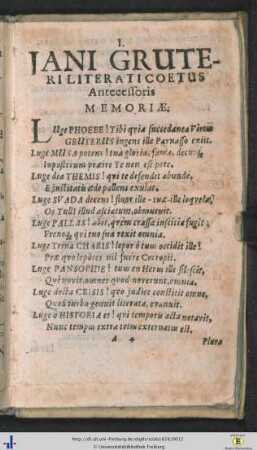 I.
JANI GRUTE-
RI LITERATI COETUS
Antecessoris
MEMORIÆ.
LUge PHOEBE! Tibi quia succedanea Virtus
GRUTERUS ingens ille Parnasso exiit.
Luge MUSA potens! tua gloria, fama, decus
Impostrum praeire Te non est potè.
Luge dea THEMIS! qui te defendit abundè,
E justitiæ æde pallens exulat.
Luge SVADA decens! suror ille - tuæ - ille loquelæ,
Os Tulli illud asciatum, obmutuit.
Luge PALLAS! abit, quem crassa inscitia fugit
Vrenda, qui tuo sua texit omnia.
Luge Trina CHARIS! lepor ô tuus occidit ille!
Præ quo lepôres nil fuere Cecropii.
Luge PANSOPHIE! tuus en Herus ille
Qui novit omnes quod noverunt, omnia.
Luge docta CRISIS! quo judice constitit omne,
Quod turba gemuit literata, evanuit.
Luge ô HISTORIA et! qui temporis acta notavit,
Nunc tempus extra totus externatus est.
A 4 Plura
http://dl.ub.uni-freiburg.de/diglit/
© Universitätsbibliothek Freiburg